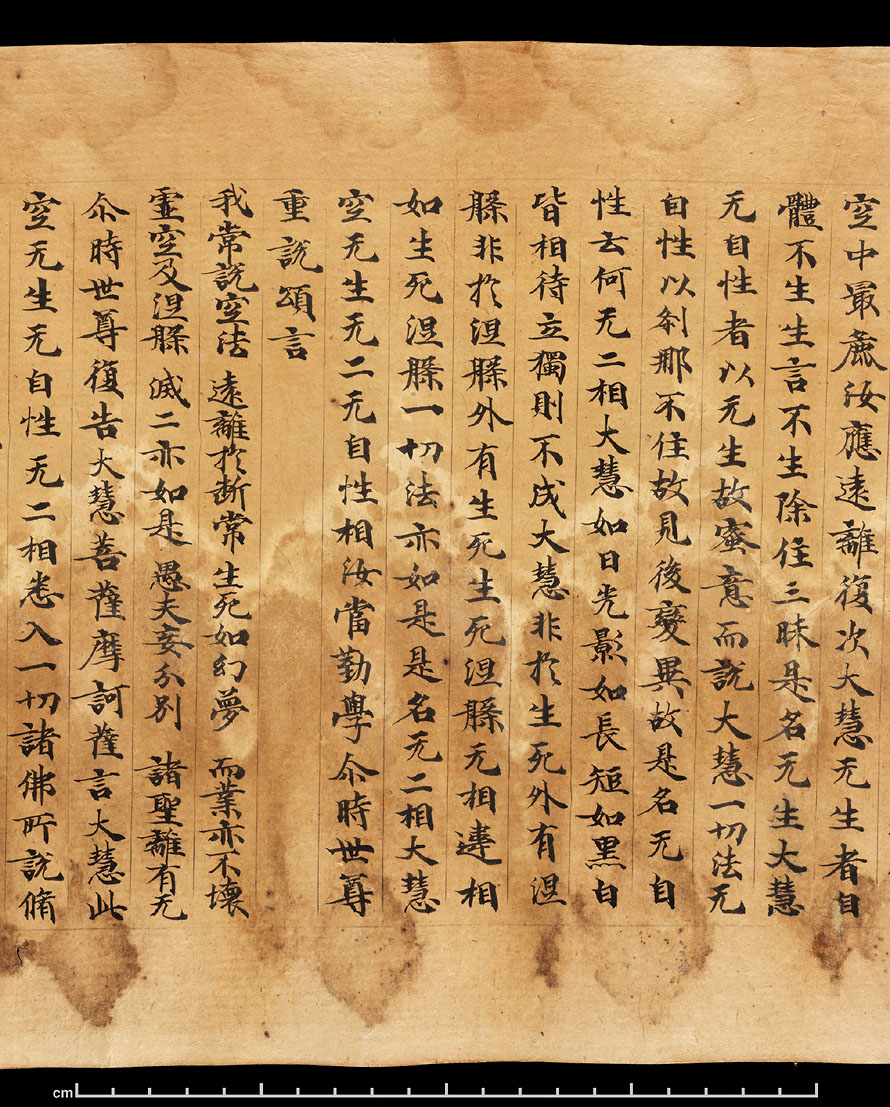 空中最麁汝應遠離復次大慧无生者自
體不生生言不生除住三昧是名无生大慧
无自性者以无生故蜜意而說大慧一切法无
自性以刹那不住故見後變異故是名无自
性云何无二相大慧如日光影如長短如黑白
皆相待立獨則不成大慧非於生死外有涅
槃非於涅槃外有生死生死涅槃无相違相
如生死涅槃一切法亦如是是名无二相大慧
空无生无二无自性相汝當勤學尒時世尊
重說頌言
我常說空法 遠離於断常 生死如幻夢 而業亦不壞
虛空及涅槃 滅二亦如是 愚夫妄分別 諸聖離有无
尒時世尊復告大慧菩薩摩訶薩言大慧此
空无生无自性无二相悉入一切諸佛所說脩
cm